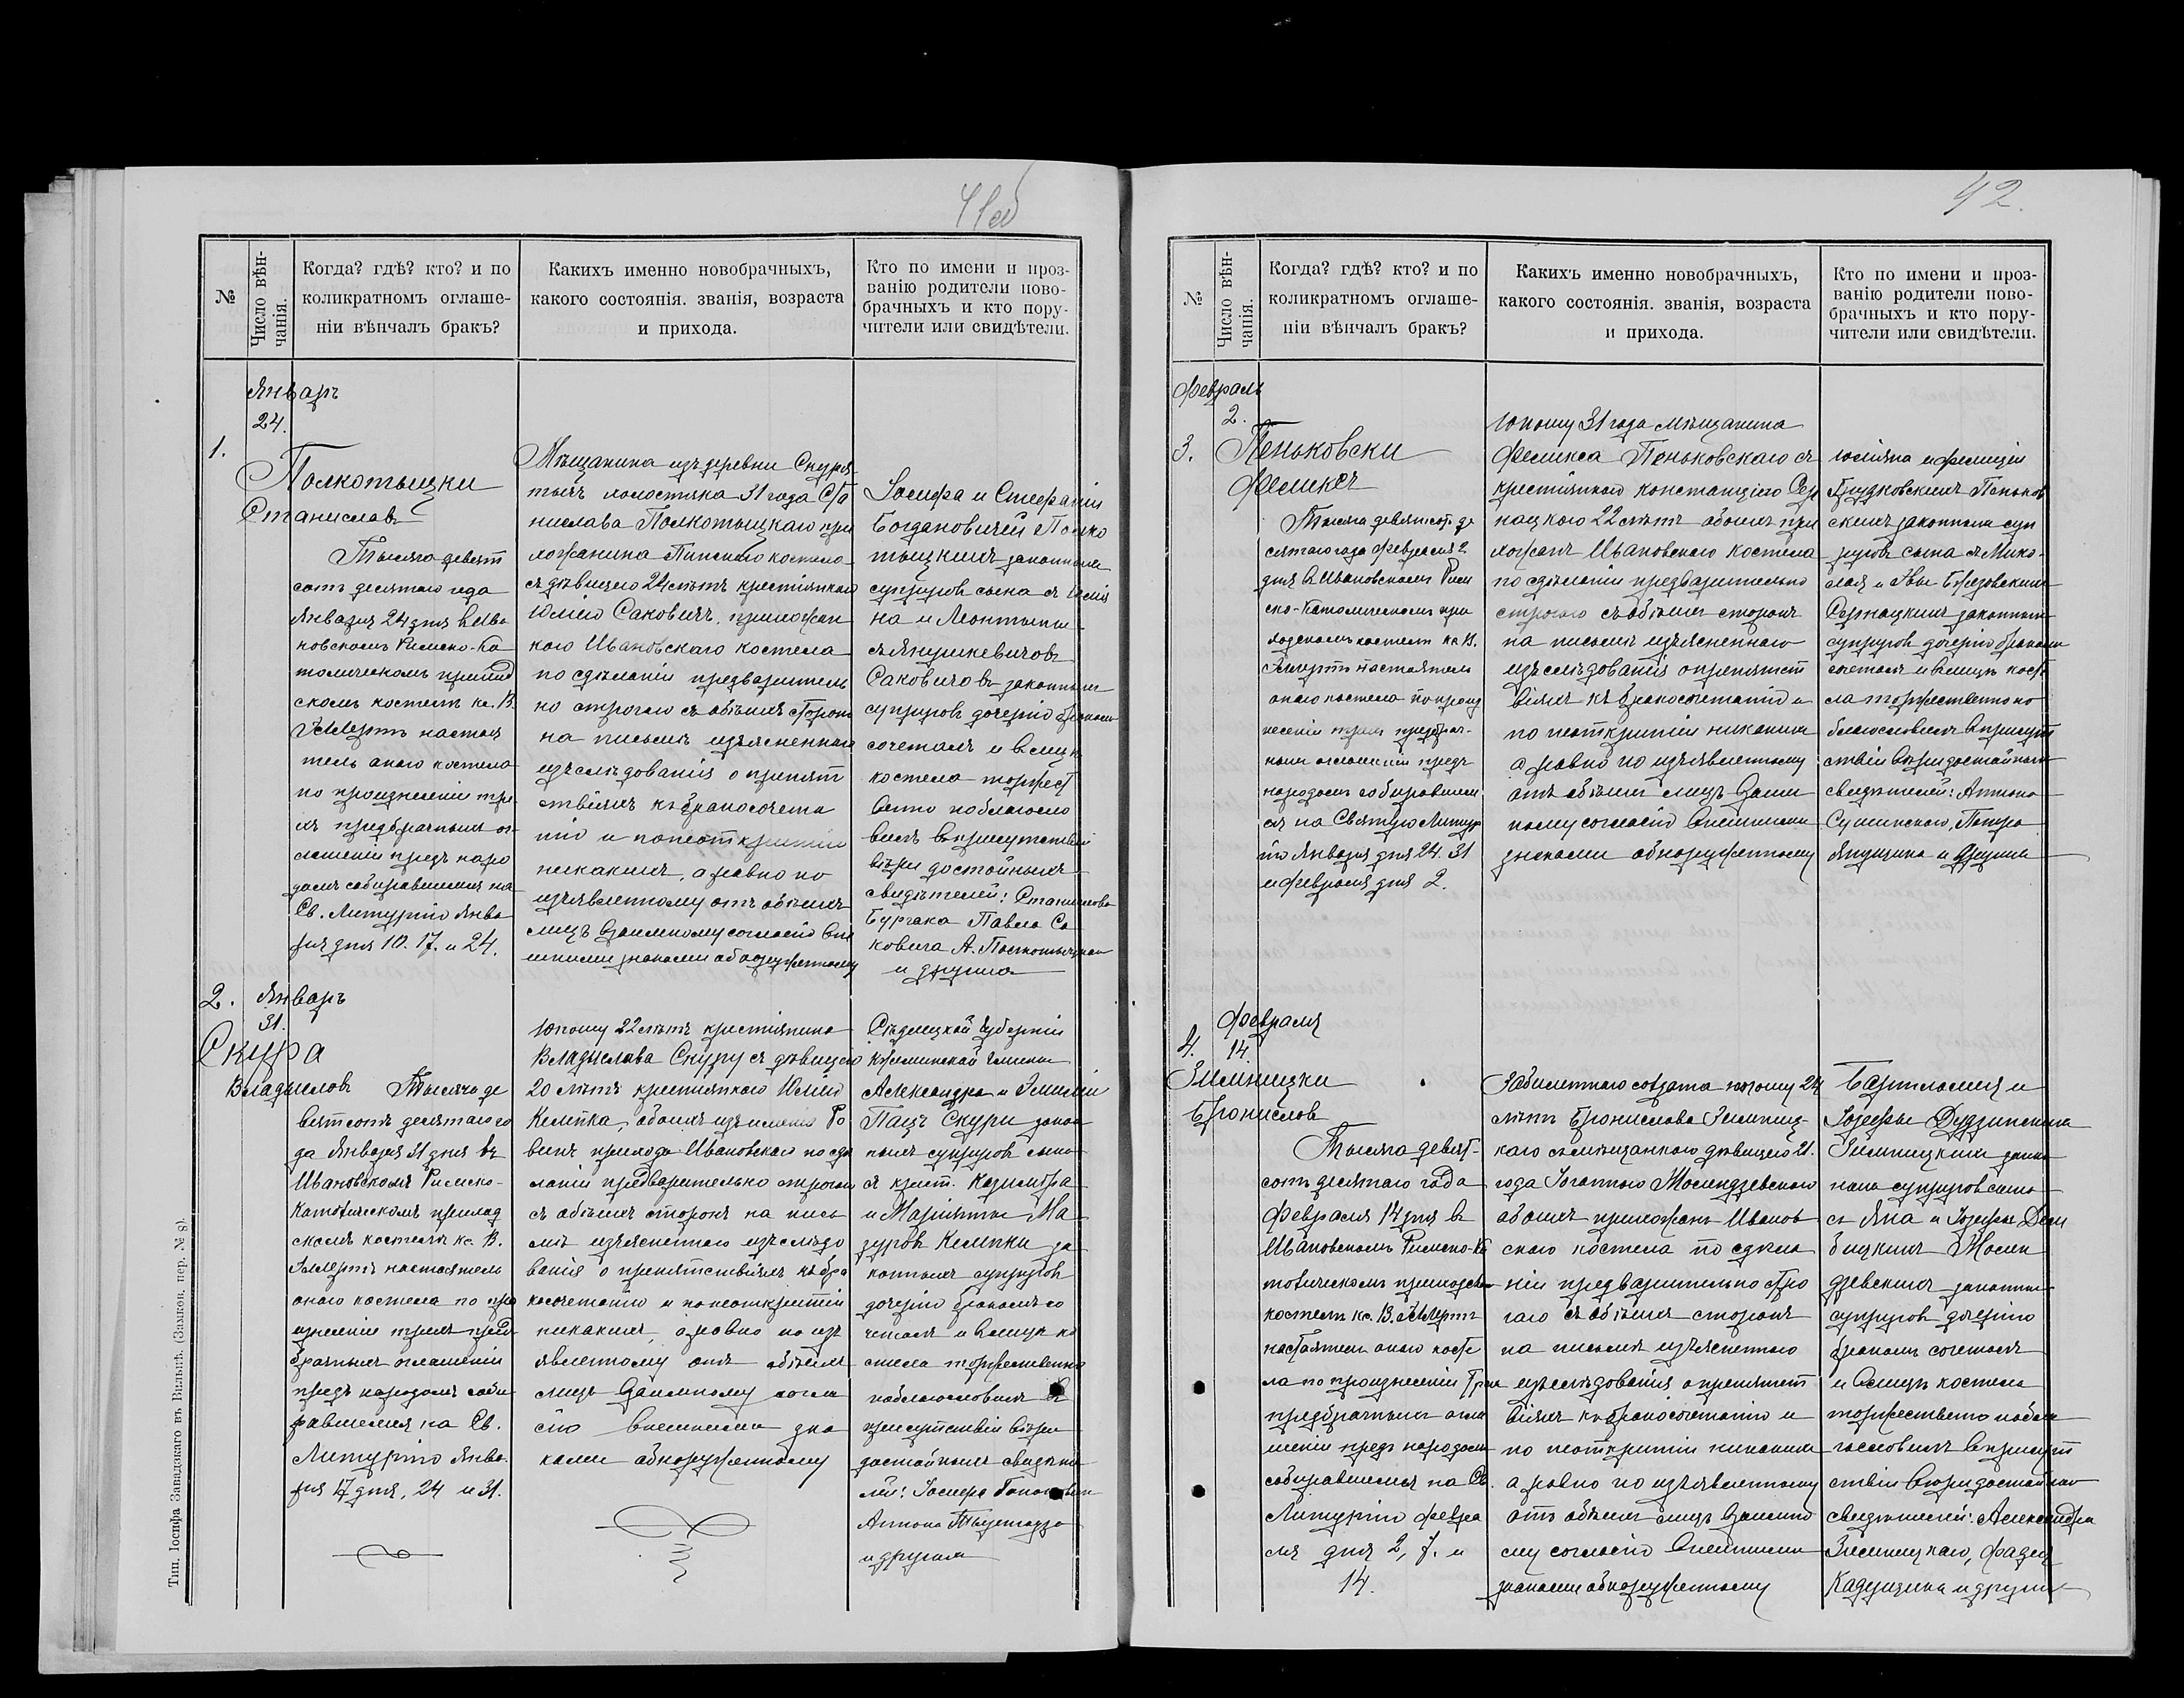 41об
№
Число вѣн-
чанія.
Когда? гдѣ? кто? и по
коликратномъ оглаше-
ніи вѣнчалъ бракъ?
Какихъ именно новобрачныхъ,
какого состоянія. званія, возраста
и прихода.
Кто по имени и проз-
ванію родители ново-
брачныхъ и кто пору-
чители или свидѣтели.
Январь
24.
1.
Полкотыцки
Станиславъ
Тысяча девят
сотъ десятаго года
Января 24 дня в Ива
новскомъ Римско-Ка
толическомъ приход
скомъ костелѣ кс. В.
Эллертъ настоя
тель онаго костела
по произнесеніи тре
хъ предбрачныхъ ог
лашеній предъ наро
домъ собиравшимся на
Св. Литургію Янва
ря дня 10. 17. и 24.
Мѣщанина изъ деревни
холостяка 31 года Ста
нислава Полкотыцкаго при
хожанина Пинскаго костела
съ дѣвицею 24 лѣтъ крестьянкою
Юліею Саковичъ, прихожан
кою Ивановскаго костела
по сдѣланіи предваритель
но строгаго съ обѣихъ сторонъ
на письмѣ изъясненнаго
изслѣдованія о препят
ствіяхъ къ бракосочета
нію и по неоткрытіи
никакихъ, а равно по
изъявленному отъ обѣихъ
лицъ взаимному согласію внѣ
шними знаками обнаруженному
Іосифа и Стефаніи
Богдановичей Полко
тыцкихъ законныхъ
супруговъ сына съ Юлія
на и Леонтыны
Янушкевичовъ
Саковичовъ законныхъ
супруговъ дочерію бракомъ
сочеталъ и в лицѣ
костела торжест
венно поблагосло
вилъ в присутствіи
вѣры достойныхъ
свидѣтелей: Станислава
Бургака Павла Са
ковича А. Полкотыцкаго
и другихъ
2. Январь
31.
Скура
Владыславъ Тысяча де
вятсотъ десятаго го
да Января 31 дня въ
Ивановскомъ Римско-
Католическомъ приход
скомъ костелѣ кс. В.
Эллертъ настоятель
онаго костела по про
изнесеніи трехъ пред
брачныхъ оглашеній
предъ народомъ соби
равшимся на Св.
Литургію Янва
ря 17 дня, 24 и 31.
Юношу 22 лѣтъ крестьянина
Владыслава Скуру съ дѣвицею
20 лѣтъ крестьянкою Юліею
Келпка, обоихъ изъ имѣнія Ро
вины прихода Ивановскаго по сдѣ
ланіи предварительно строгаго
съ обѣихъ сторонъ на пись
мѣ изъясненнаго изслѣдо
ванія о препятствіяхъ къ бра
косочетанію и по неоткрытіи
никакихъ, а равно по изъ
явленному отъ обѣихъ
лицъ взаимному согла
сію внешними зна
ками обнаруженному
Сѣдлецкой губерніи
гмины
Александра и Эмиліи
Пацъ Скуры закон
ныхъ супруговъ сына
съ крест. Казимѣра
и Маріанны Ма
зуровъ Келпки за
конныхъ супруговъ
дочерію бракомъ со
четалъ и в лицѣ ко
стела торжественно
поблагословилъ въ
присутствіи вѣры
достойныхъ свидѣте
лей: Іосифа
Антона
и другихъ
Тип. Іосифа Завадзкаго въ Вильнѣ. (Замков. пер. № 8).
42.
№
Число вѣн-
чанія.
Когда? гдѣ? кто? и по
коликратномъ оглаше-
ніи вѣнчалъ бракъ?
Какихъ именно новобрачныхъ,
какого состоянія. званія, возраста
и прихода.
Кто по имени и проз-
ванію родители ново-
брачныхъ и кто пору-
чители или свидѣтели.
Февраль
2.
3. Пеньковски
Феликсъ
Тысяча девятсотъ де
сятаго года Февраля 2
дня в Ивановскомъ Рим
ско-Католическомъ при
ходскомъ костелѣ кс. В.
Эллертъ настоятель
онаго костела по произ
несеніи трехъ предбрач-
ныхъ оглашеній предъ
народомъ собиравшим
ся на Святую Литур
гію Января дня 24. 31
и февраля дня 2.
Юношу 31 года мѣщанина
Феликса Пеньковскаго съ
крестьянкою Констанціею Сер
нацкою 22 лѣтъ обоихъ при
хожанъ Ивановскаго костела
по сдѣланіи предварительно
строгаго съ обѣихъ сторонъ
на письмѣ изъясненнаго
изслѣдованія о препятст
віяхъ къ бракосочетанію и
по неоткрытіи никакихъ
а равно по изъявленному
отъ обѣихъ лицъ взаим
ному согласію внешними
знаками обнаруженному
Юліяна и Фелиціи
Прудковскихъ Пеньков
скихъ законныхъ суп
руговъ сына съ Мико-
лая и Эвы Брезовскихъ
Сернацкихъ законныхъ
супруговъ дочерію бракомъ
сочеталъ и в лицѣ косте
ла торжественно по
благословилъ в присут
ствіи вѣры достойныхъ
свидѣтелей: Антона
Сушинскаго, Петра
и другихъ
Февраля
4. 14.
Зимницки
Брониславъ
Тысяча девят-
сотъ десятаго года
Февраля 14 дня въ
Ивановскомъ Римско-Ка
толическомъ приходскомъ
костелѣ кс. В. Эллертъ
настоятель онаго косте
ла по произнесеніи трехъ
предбрачныхъ огла
шеній предъ народомъ
собиравшимся на Св.
Литургію февра
ля дня 2, 7. и
14.
Забилетнаго солдата юношу 24
лѣтъ Бронислава Зимниц-
каго съ мѣщанкою дѣвицею 21.
года Іоанною Жолендзевскою
обоихъ прихожанъ Иванов
скаго костела по сдѣла
ніи предварительно стро
гаго съ обѣихъ сторонъ
на письмѣ изъясненнаго
изслѣдованія о препятст
віяхъ къ бракосочетанію и
по неоткрытіи никакихъ
а равно по изъявленному
отъ обѣихъ лицъ взаимно
му согласію внешними
знаками обнаруженному
Бартломея и
Іозефы Дудзинскихъ
Зимницкихъ закон
ныхъ супруговъ сына
съ Яна и Іозефы
Жолен
дзевскихъ законныхъ
супруговъ дочерію
бракомъ сочеталъ
и в лицѣ костела
торжественно побла
гословилъ в присут
ствіи вѣры достойныхъ
свидѣтелей: Александра
Зимницкаго, Фадея
и другихъ